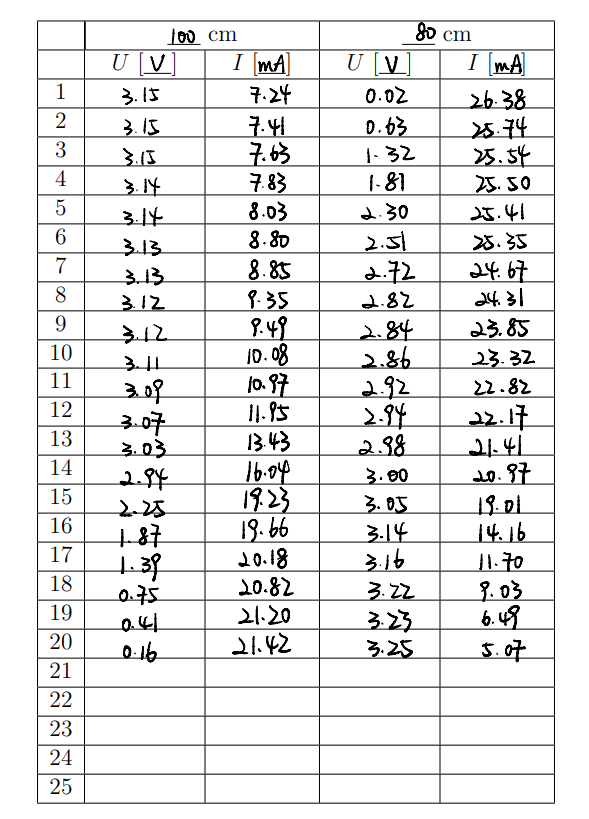 100 cm 80 cm
U [V] I [mA] U [V] I [mA]
1 3.15 7.24 0.02 26.38
2 3.15 7.41 0.63 25.74
3 3.15 7.63 1.32 25.54
4 3.14 7.83 1.81 25.50
5 3.14 8.03 2.30 25.41
6 3.13 8.80 2.51 25.35
7 3.13 8.85 2.72 24.67
8 3.12 9.35 2.82 24.31
9 3.12 9.49 2.84 23.85
10 3.11 10.08 2.86 23.32
11 3.09 10.97 2.92 22.82
12 3.07 11.95 2.94 22.17
13 3.03 13.43 2.98 21.41
14 2.94 16.04 3.00 20.97
15 2.25 19.23 3.05 19.01
16 1.87 19.66 3.14 14.16
17 1.39 20.18 3.16 11.70
18 0.75 20.82 3.22 9.03
19 0.41 21.20 3.23 6.49
20 0.16 21.42 3.25 5.07
21
22
23
24
25